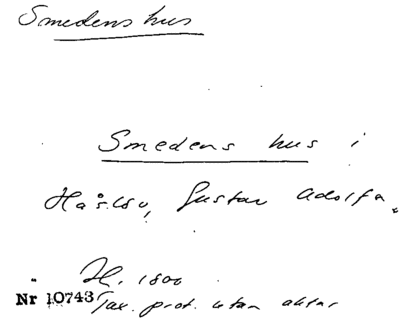 Smedens hus
Smedens hus i
Håslöv, Gustav Adolfs.
H. 1800
Nr 10743 Tax. prot. utan aktar